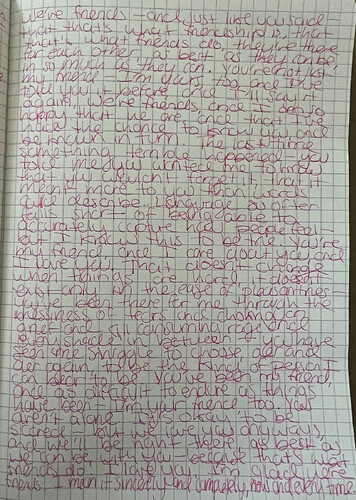 we're friends - and just like you said
that that's what friendship is, that
that's what friends do, they're there
for each other as best as they can be,
so much as they can. You're not just
my friend - I'm yours too and I've
told you it before and I'll say it
again, we're friends and I am so
happy that we are, and that I've
had the chance to know you, and
be known in turn. The last time
something terrible happened - you
told me you wanted me to know
that you wouldn't forget it, that it
meant more to you than words
quite describe. Language so often
falls short of being able to
accurately capture how people feel -
but I know this to be true. You're
my friend and I care about you and
I love you. That doesn't change
when things are hard - it doesn't
exist only in the ease of pleasantries -
you've been there for me through the
messiness of tears and drowning
grief and all consuming rage and
every shade in between - you have
seen me struggle to choose again and
again to be the kind of person I
can bear to be. You've been my friend,
and as difficult to endure as things
have been - I'm your friend too. You
aren't alone. It's okay to be
scared - but we love you anyways,
and we'll be right there as best as
we can be with you - because that's what
friends do. I love you. I'm glad we're
friends. I mean it sincerely and completely, now and every time.